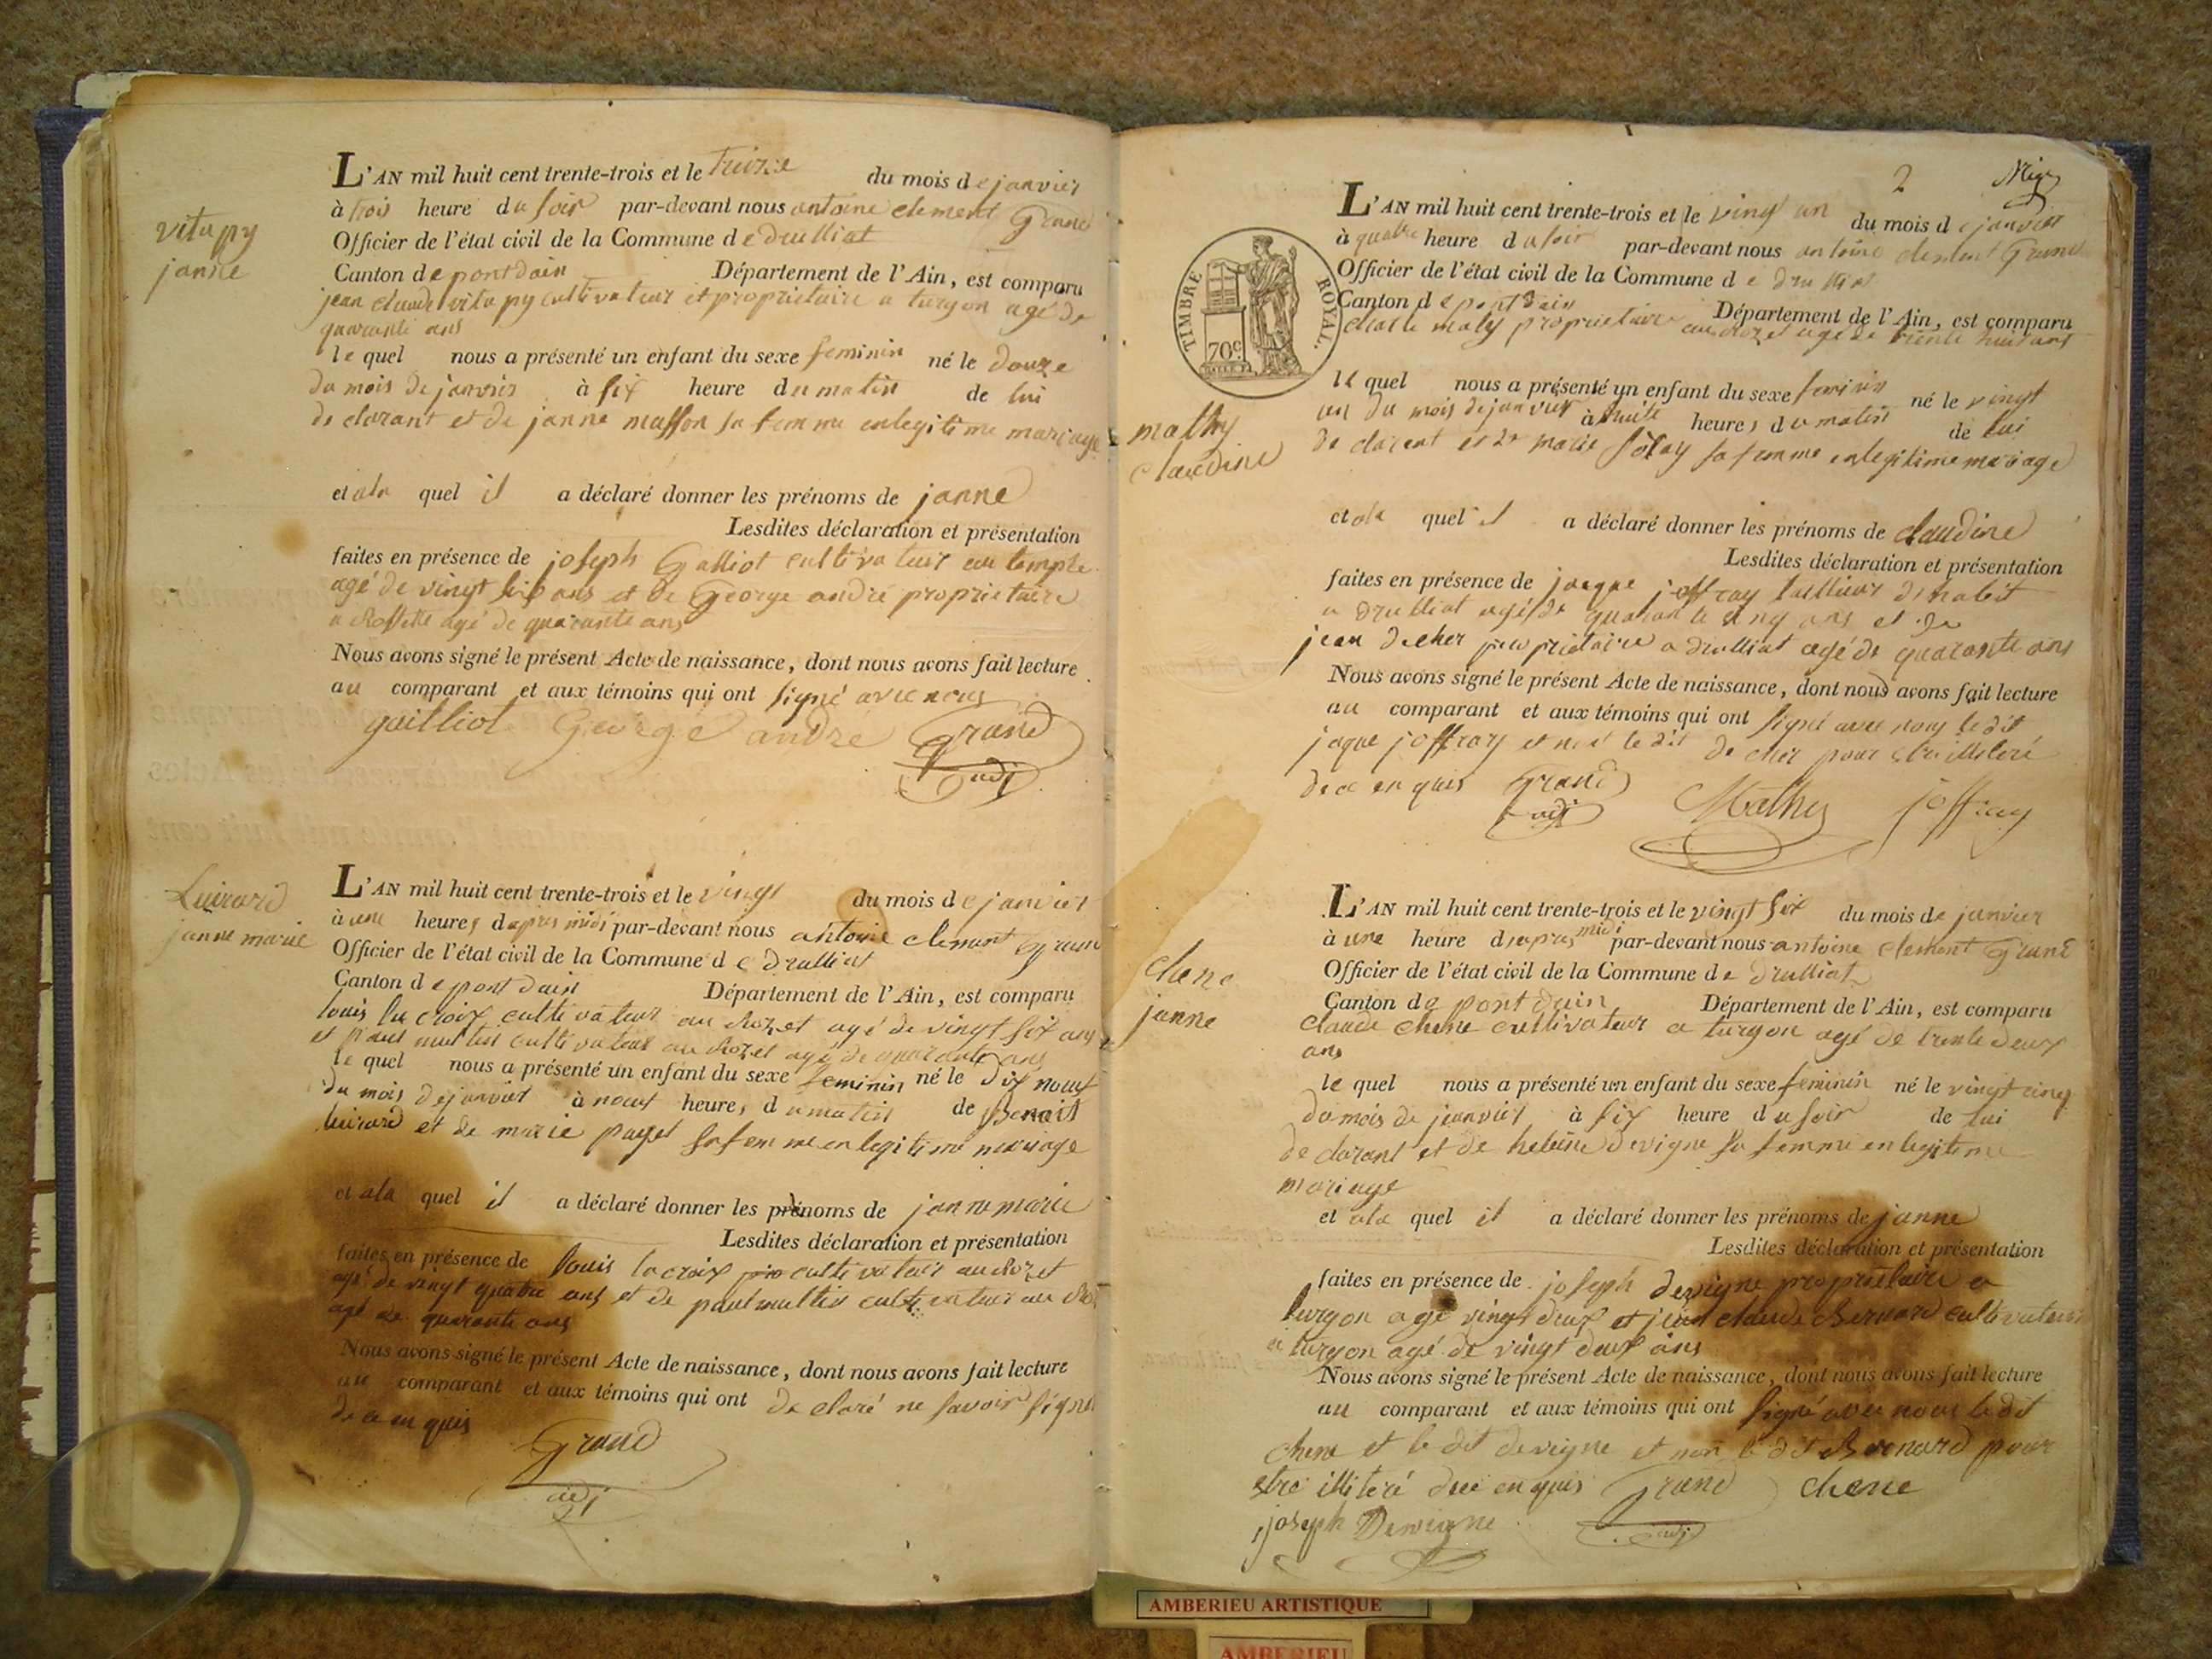 vitupy
janne
L'AN mil huit cent trente-trois et le treize du mois de janvier
à trois heure du soir par-devant nous antoine clement Grand
Officier de l'état civil de la Commune de drulliat
Canton de pontdain Département de l'Ain, est comparu
jean claude vitupy cultivateur et proprietaire a turgon agé de
quarante ans
le quel nous a présenté un enfant du sexe feminin né le douze
du mois de janvier à six heure du matin de lui
de clarant et de janne masson sa femme en legitime mariage
et ala quel il a déclaré donner les prénoms de janne
Lesdites déclaration et présentation
faites en présence de joseph Galliot cultivateur au temple
agé de vingt ans et de George andré proprietaire
a agé de quarante ans
Nous avons signé le présent Acte de naissance, dont nous avons fait lecture
au comparant et aux témoins qui ont signé avec nous
gailliot George andré Grand
adj
Luirard
janne marie
L'AN mil huit cent trente-trois et le vingt du mois de janvier
à une heures dapres midi par-devant nous antoine clemant Grand
Officier de l'état civil de la Commune de drulliat
Canton de pont dain Département de l'Ain, est comparu
louis la croix cultivateur au chozet agé de vingt six ans
et paul multin cultivateur au chozet agé de quarante ans
le quel nous a présenté un enfant du sexe feminin né le dix neuf
du mois de janvier à neuf heures du matin de Benoit
luirard et de marie payet sa femme en legitime mariage
et ala quel il a déclaré donner les prénoms de janne marie
Lesdites déclaration et présentation
faites en présence de louis lacroix cultivateur au chozet
agé de vingt quatre ans et de paul multin cultivateur au
agé de quarante ans
Nous avons signé le présent Acte de naissance, dont nous avons fait lecture
au comparant et aux témoins qui ont de claré ne savoir signe
de ce en quis
Grand
adj
2
TIMBRE ROYAL.
70c
mathy
claudine
L'AN mil huit cent trente-trois et le vingt un du mois de janvier
à quatre heure du soir par-devant nous antoine clement Grand
Officier de l'état civil de la Commune de drulliat
Canton de pontdain Département de l'Ain, est comparu
mathy proprietaire au chozet agé de trente huit ans
le quel nous a présenté un enfant du sexe feminin né le vingt
un du mois de janvier à huite heures du matin de lui
de clarent et de marie sa femme en legitime mariage
et ala quel il a déclaré donner les prénoms de claudine
Lesdites déclaration et présentation
faites en présence de jacque joffray tallieur dhabit
a drulliat agé de quarante cinq ans et de
jean decher proprietaire a drulliat agé de quarante ans
Nous avons signé le présent Acte de naissance, dont nous avons fait lecture
au comparant et aux témoins qui ont signé avec nous le dit
jaque joffray et non le dit de cher pour etre illiteré
de ce en quis Grand Mathy joffray
adj
chene
janne
L'AN mil huit cent trente-trois et le vingt six du mois de janvier
à une heure dapres midi par-devant nous antoine clement Grand
Officier de l'état civil de la Commune de drulliat
Canton de pont dain Département de l'Ain, est comparu
claude chene cultivateur a turgon agé de trente deux
ans
le quel nous a présenté un enfant du sexe feminin né le vingt cinq
du mois de janvier à six heure du soir de lui
de clarant et de heleine devigne sa femme en legitime
mariage
et ala quel il a déclaré donner les prénoms de janne
Lesdites déclaration et présentation
faites en présence de joseph devigne proprietaire a
turgon agé vingt deux et jean claude Bernard cultivateur
a turgon agé de vingt deux ans
Nous avons signé le présent Acte de naissance, dont nous avons fait lecture
au comparant et aux témoins qui ont signé avec nous le dit
chene et le dit devigne et non le dit Bernard pour
etre illiteré de ce en quis Grand chene
joseph Devigne adj
AMBERIEU ARTISTIQUE
AMBERIEU